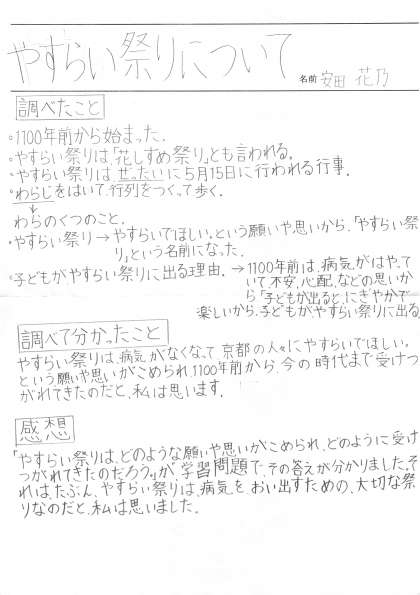 やすらい祭りについて
名前 安田 花乃
調べたこと
・1100年前から始まった.
・やすらい祭りは、「花しずめ祭り」とも言われる。
・やすらい祭りは ぜったいに5月15日に行われる行事.
・わらじをはいて、行列をつくって歩く.
わらのくつのこと.
・やすらい祭り→やすらいでほしい。という願いや思いから、「やすらい祭
り」という名前になった.
・子どもがやすらい祭りに出る理由. →1100年前は、病気がはやって
いて、不安、心配、などの思いか
ら「子どもが出ると、にぎやかで
楽しいから、子どもがやすらい祭りに出る
調べて分かったこと
やすらい祭りは、病気がなくなって 京都の人々にやすらいでほしい。
という願いや思いがこめられ、1100年前から、今の時代まで受けつ
がれてきたのだと、私は思います.
感想
「やすらい祭りは、どのような願いや思いがこめられ、どのように受け
つがれてきたのだろう。」が、学習問題で、その答えが分かりました。そ
れは、たぶん、やすらい祭りは、病気を おい出すための、大切な祭
りなのだと、私は思いました.